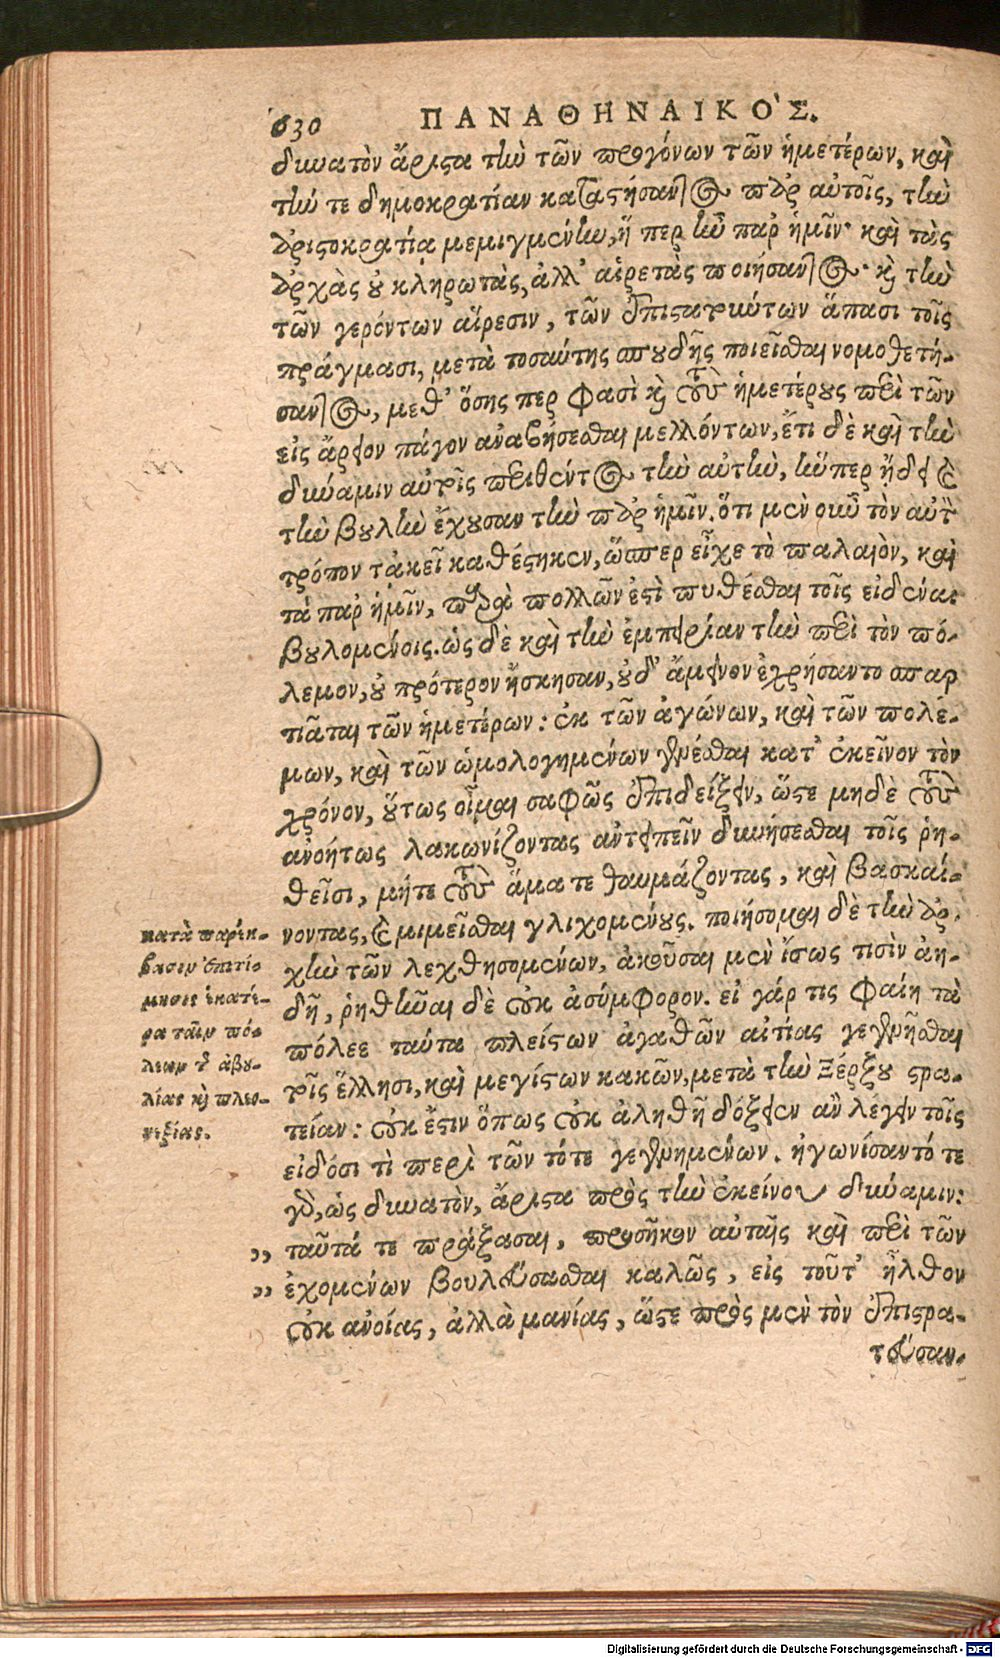 630 ΠΑΝΑΘΗΝΑΙΚΟ΄Σ.
δυνατὸν ἄριστα τὴν τῶν προγόνων τῶν ἡμετέρων, καὶ
τήν τε δημοκρατίαν καταστήσαντος παρ αὐτοῖς, τὴν
ἀριστοκρατίᾳ μεμιγμένην, ἥ περ ἦν παρ ἡμῖν· καὶ τὰς
ἀρχὰς οὐ κληρωτὰς, ἀλλ' αἱρετὰς ποιήσαντος· καὶ τὴν
τῶν γερόντων αἵρεσιν, τῶν ἐπιστατούντων ἅπασι τοῖς
πράγμασι, μετὰ τοσαύτης σπουδῆς ποιεῖσθαι νομοθετή-
σαντος, μεθ' ὅσης περ φασὶ καὶ τοὺς ἡμετέρους περὶ τῶν
εἰς ἄρειον πάγον ἀναβήσεσθαι μελλόντων, ἔτι δὲ καὶ τὴν
δύναμιν αὐτοῖς περιθέντος τὴν αὐτὴν, ἥνπερ ᾔδει καὶ
τὴν βουλὴν ἔχουσαν τὴν παρ ἡμῖν. ὅτι μὲν οὖν τὸν αὐτὸν
τρόπον τἀκεῖ καθέστηκεν, ὥσπερ εἶχε τὸ παλαιὸν, καὶ
τὰ παρ ἡμῖν, παρὰ πολλῶν ἐστὶ πυθέσθαι τοῖς εἰδέναι
βουλομένοις. ὡς δὲ καὶ τὴν ἐμπειρίαν τὴν περὶ τὸν πό-
λεμον, οὐ πρότερον ἤσκησαν, οὐδ' ἄμεινον ἐχρήσαντο σπαρ
τιᾶται τῶν ἡμετέρων: ἐκ τῶν ἀγώνων, καὶ τῶν πολέ-
μων, καὶ τῶν ὡμολογημένων γενέσθαι κατ' ἐκεῖνον τὸν
χρόνον, οὕτως οἶμαι σαφῶς ἐπιδείξειν, ὥστε μηδὲ τοὺς
ἀνοήτως λακωνίζοντας ἀντειπεῖν δυνήσεσθαι τοῖς ῥη-
θεῖσι, μήτε τοὺς ἅμα τε θαυμάζοντας, καὶ βασκαί-
νοντας, καὶ μιμεῖσθαι γλιχομένους. ποιήσομαι δὲ τὴν ἀρ-
χὴν τῶν λεχθησομένων, ἀκοῦσαι μὲν ἴσως τισὶν ἀη-
δῆ, ῥηθῆναι δὲ οὐκ ἀσύμφορον. εἰ γάρ τις φαίη τὼ
πόλεε ταύτα πλείστων ἀγαθῶν αἰτίας γεγενῆσθαι
τοῖς ἕλλησι, καὶ μεγίστων κακῶν, μετὰ τὴν Ξέρξου στρα-
τείαν: οὐκ ἔστιν ὅπως οὐκ ἀληθῆ δόξειεν ἂν λέγειν τοῖς
εἰδόσι τὶ περὶ τῶν τότε γεγενημένων. ἠγωνίσαντό τε
γὰρ, ὡς δυνατὸν, ἄριστα πρὸς τὴν ἐκείνου δύναμιν:
,, ταῦτά τε πράξασαι, προσῆκον αὐταῖς καὶ περὶ τῶν
,, ἐχομένων βουλεύσασθαι καλῶς, εἰς τοῦτ' ἦλθον
οὐκ ἀνοίας, ἀλλὰ μανίας, ὥστε πρὸς μὲν τὸν ἐπιστρα-
τεύσαν-
κατὰ παρέκ-
βασιν ἐπιτί-
μησις ἑκατέ-
ρα ταῖν πό-
λεων τῆς ἀβου-
λίας καὶ πλεο-
νεξίας.
Digitalisierung gefördert durch die Deutsche Forschungsgemeinschaft - DFG